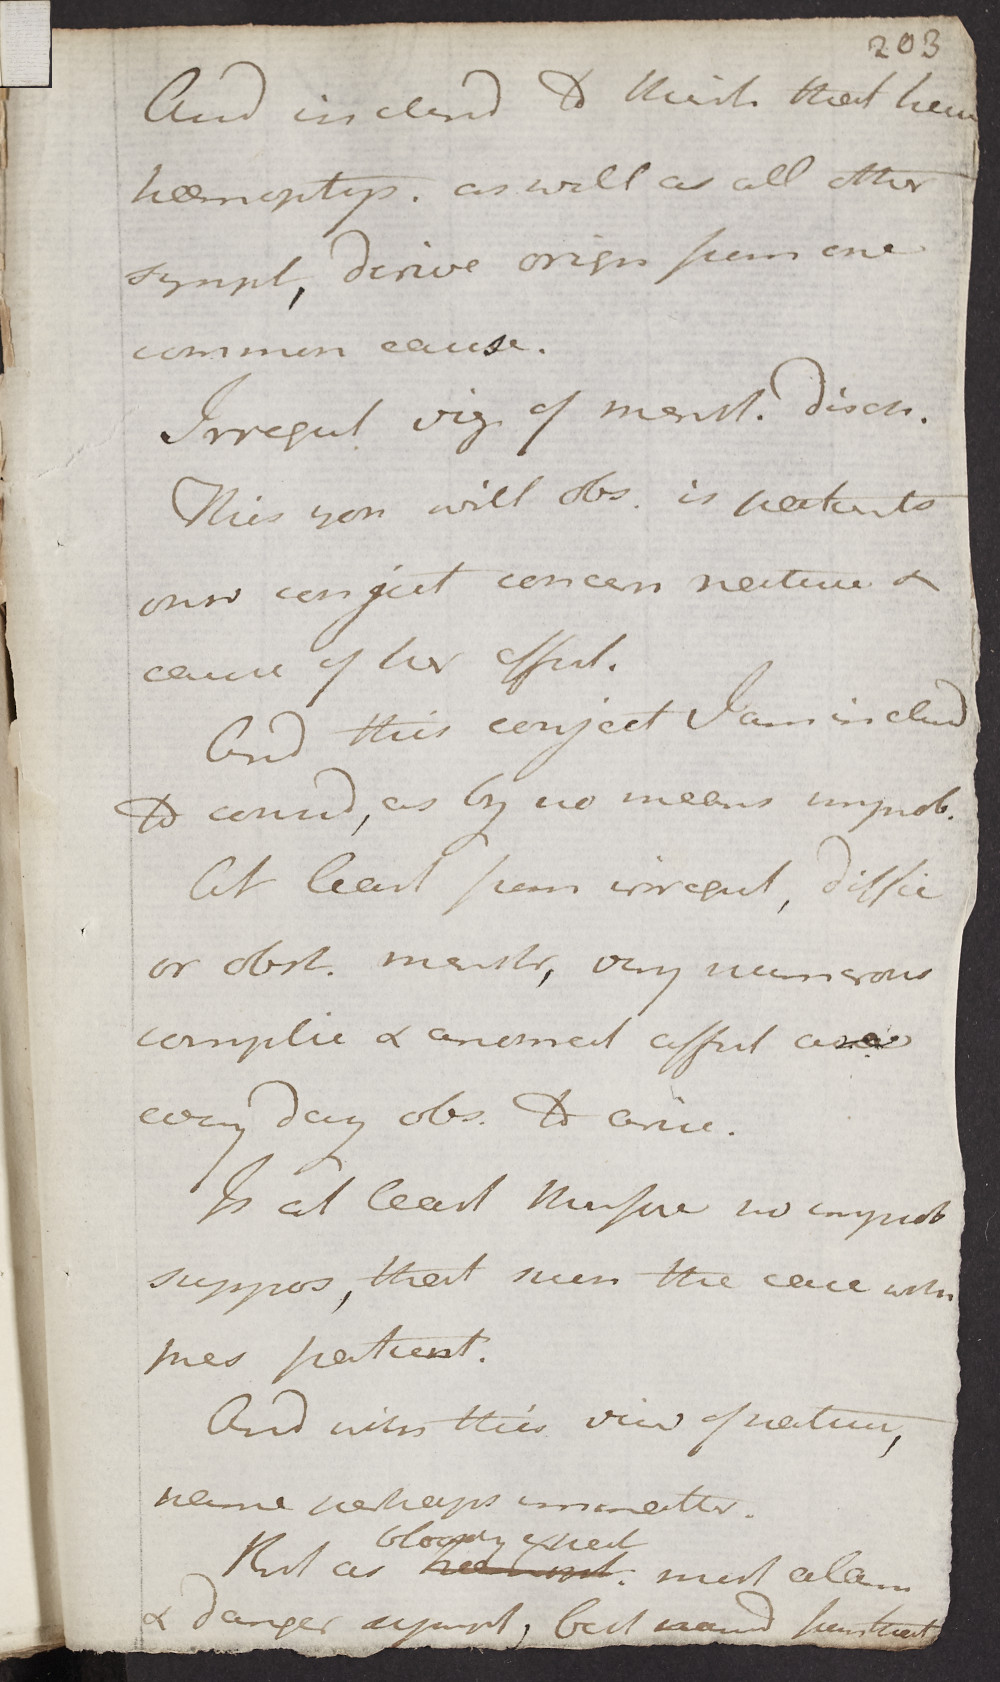 203
And inclend to think that here
hæmoptys. as well as all other
sympt, derive origin from one
common cause.
Irregul. viz of menst. disch.
This you will obs. is patients
own conject concern nature &
cause of her affect.
And this conject I am inclend
to consid, as by no means improb.
At least from irregul, diffic
or obst. menstr, very numerous
complic & anomal affect are
every day obs. to arise.
Is at least therefore no improb
suppos, that such the case with
pres patient.
And with this view of nature,
name perhaps immatter.
bloody expect
But as hæmopt. most alarm
& danger sympt, best nam'd from that